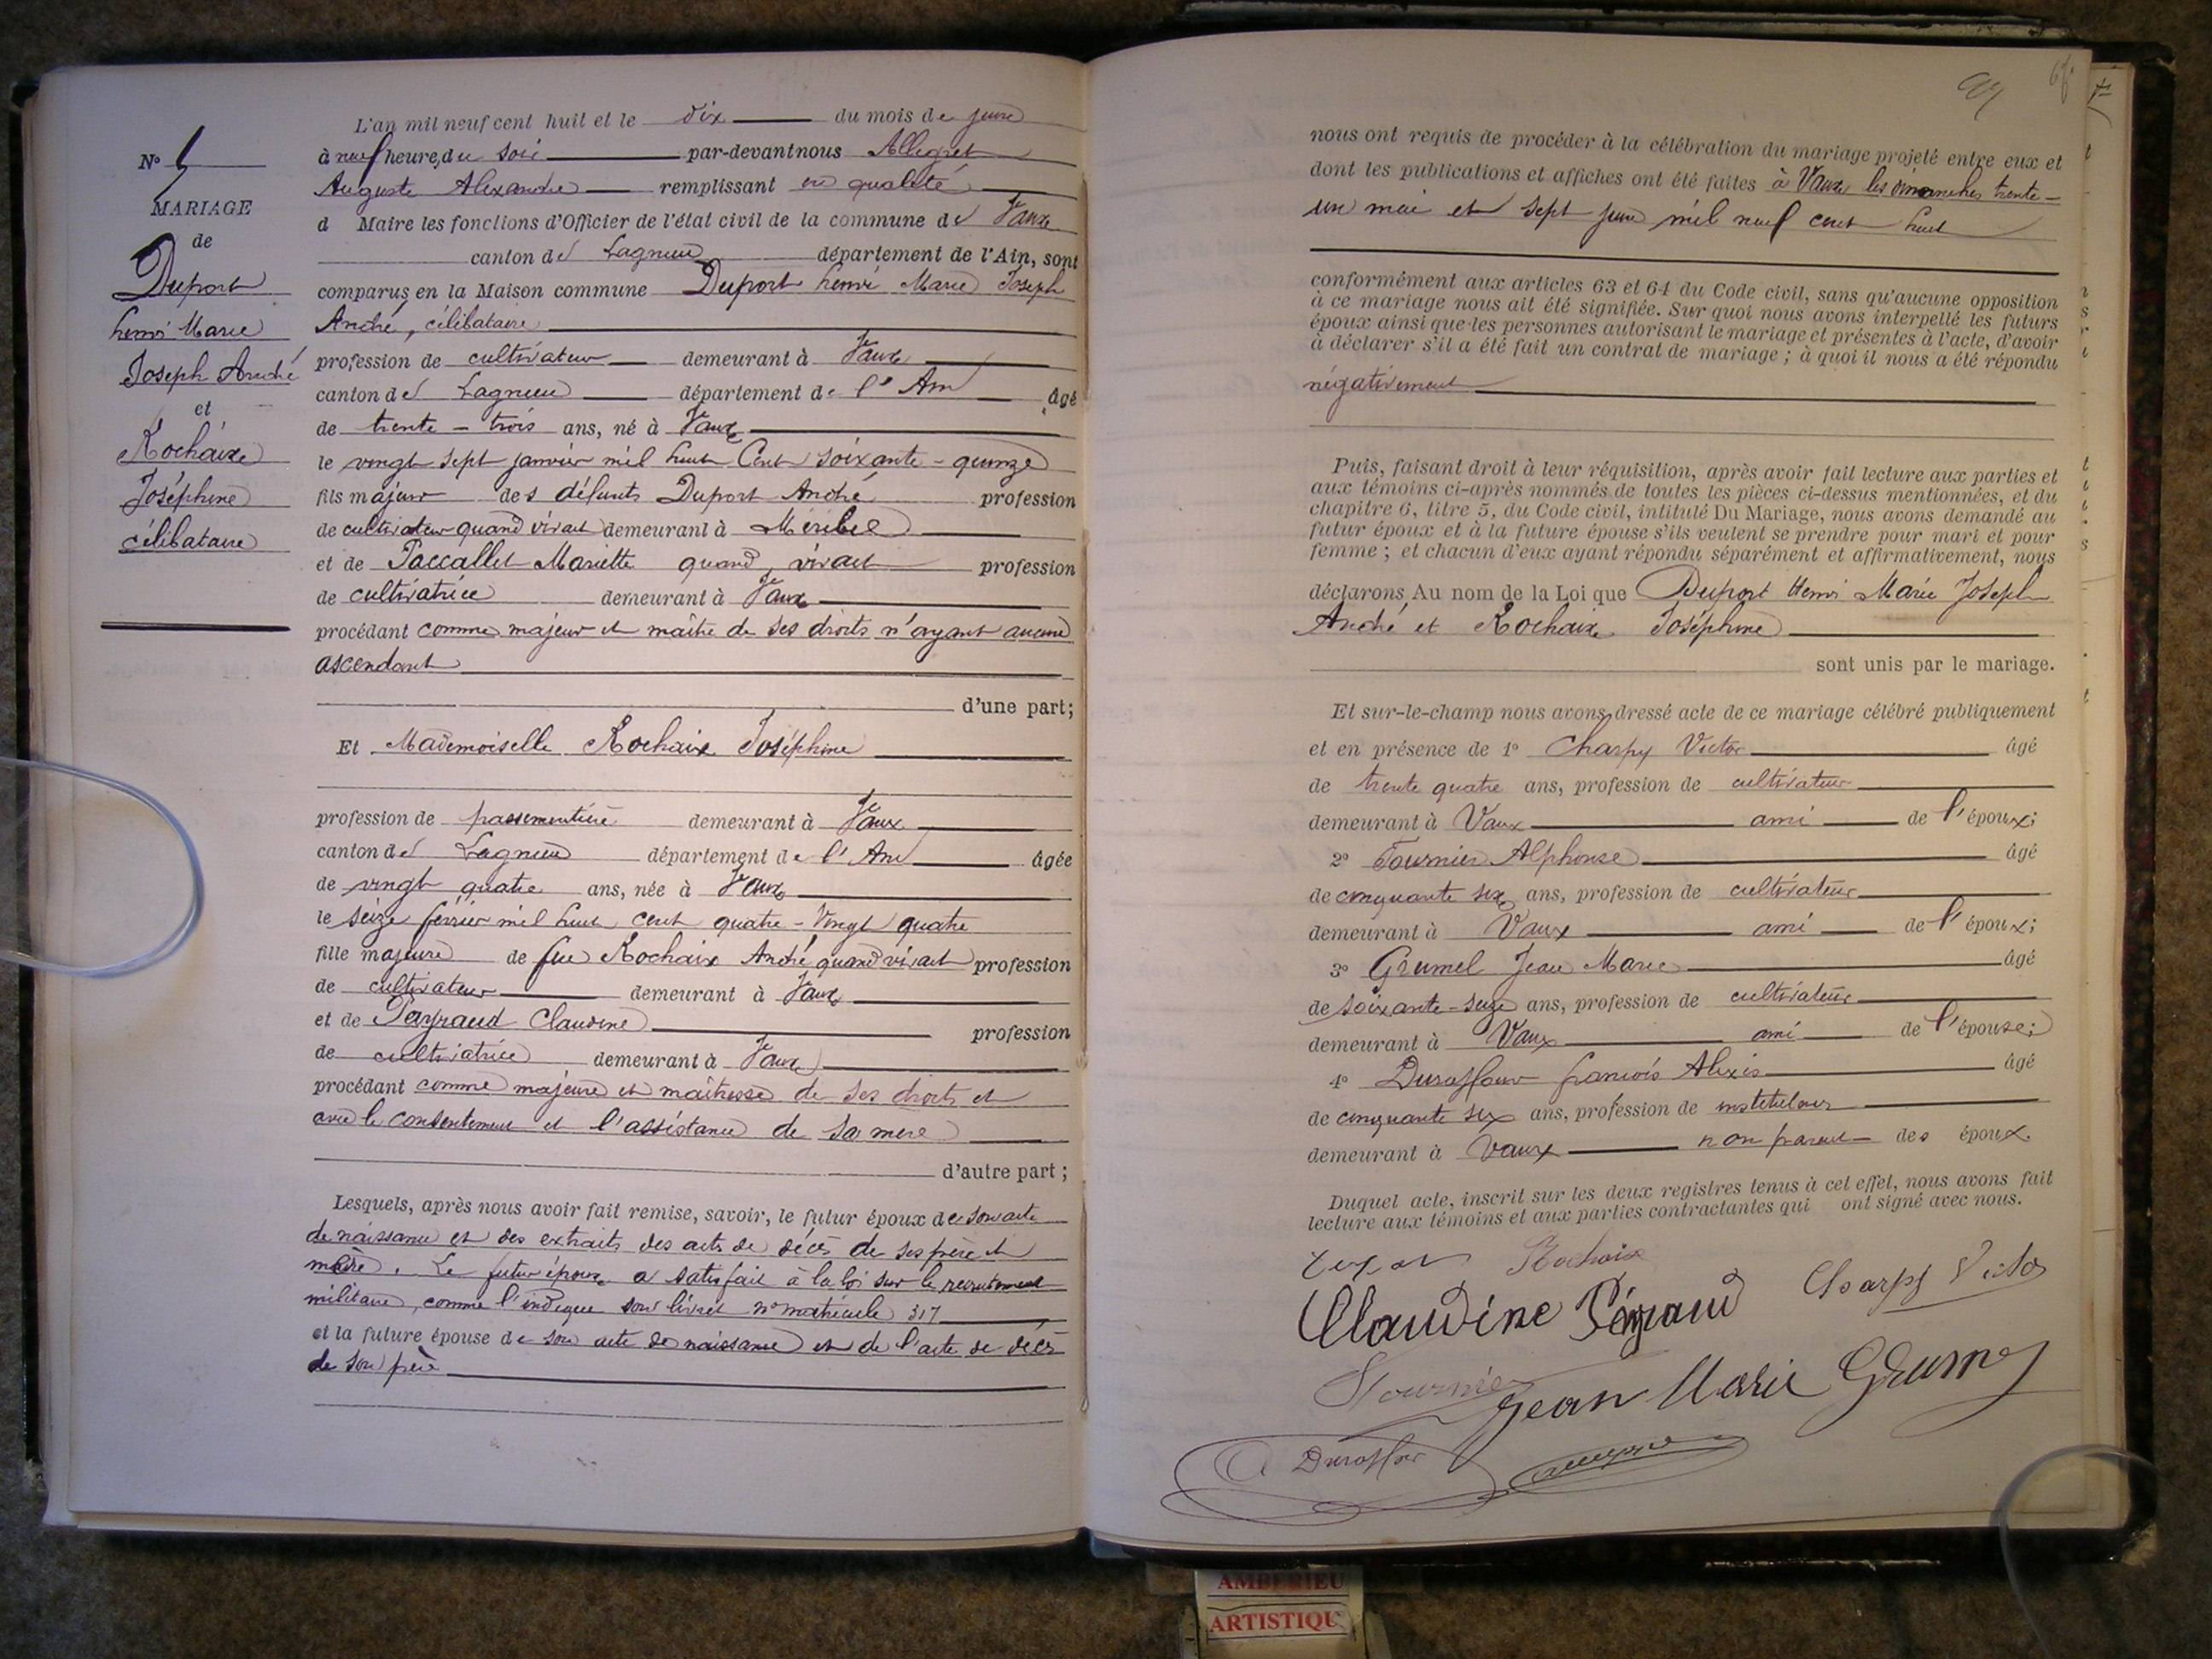 N° 5
MARIAGE
de
Duport
henri Marie
Joseph André
et
Rochaix
Joséphine
célibataire
L'an mil neuf cent huit et le dix du mois de juin
à neuf heures du soir par-devant nous Allegret
Auguste Alexandre remplissant en qualité
d Maire les fonctions d'Officier de l'état civil de la commune de Vaux
canton de Lagnieu département de l'Ain, sont
comparus en la Maison commune Duport henri Marie Joseph
André, célibataire
profession de cultivateur demeurant à Vaux
canton de Lagnieu département de l'Ain âgé
de trente-trois ans, né à Vaux
le vingt sept janvier mil huit Cent soixante-quinze
fils majeur des défunts Duport André profession
de cultivateur quand vivait demeurant à Méribel
et de Paccallet Mariette quand vivait profession
de cultivatrice demeurant à Vaux
procédant comme majeur et maître de ses droits n'ayant aucun
ascendant
d'une part;
Et Mademoiselle Rochaix Joséphine
profession de passementière demeurant à Vaux
canton de Lagnieu département de l'Ain âgée
de vingt quatre ans, née à Vaux
le seize février mil huit cent quatre-Vingt quatre
fille majeure de feu Rochaix André quand vivait profession
de cultivateur demeurant à Vaux
et de Payraud Claudine profession
de cultivatrice demeurant à Vaux
procédant comme majeure et maîtresse de ses droits et
avec le consentement et l'assistance de sa mère
d'autre part;
Lesquels, après nous avoir fait remise, savoir, le futur époux de son acte
de naissance et des extraits des actes de décès de ses père et
mère. Le futur époux a satisfait à la loi sur le recrutement
militaire, comme l'indique son livret n° matricule 317
et la future épouse de son acte de naissance et de l'acte de décès
de son père
nous ont requis de procéder à la célébration du mariage projeté entre eux et
dont les publications et affiches ont été faites à Vaux les dimanches trente-
un mai et sept juin mil neuf cent huit
conformément aux articles 63 et 64 du Code civil, sans qu'aucune opposition
à ce mariage nous ait été signifiée. Sur quoi nous avons interpellé les futurs
époux ainsi que les personnes autorisant le mariage et présentes à l'acte, d'avoir
à déclarer s'il a été fait un contrat de mariage; à quoi il nous a été répondu
négativement
Puis, faisant droit à leur réquisition, après avoir fait lecture aux parties et
aux témoins ci-après nommés de toutes les pièces ci-dessus mentionnées, et du
chapitre 6, titre 5, du Code civil, intitulé Du Mariage, nous avons demandé au
futur époux et à la future épouse s'ils veulent se prendre pour mari et pour
femme; et chacun d'eux ayant répondu séparément et affirmativement, nous
déclarons Au nom de la Loi que Duport Henri Marie Joseph
André et Rochaix Joséphine
sont unis par le mariage.
Et sur-le-champ nous avons dressé acte de ce mariage célébré publiquement
et en présence de 1° Charpy Victor âgé
de trente quatre ans, profession de cultivateur
demeurant à Vaux ami de l'époux;
2° Tournier Alphonse âgé
de cinquante six ans, profession de cultivateur
demeurant à Vaux ami de l'époux;
3° Grumel Jean Marie âgé
de soixante-seize ans, profession de cultivateur
demeurant à Vaux ami de l'épouse;
4° Duraffour françois Alexis âgé
de cinquante six ans, profession de instituteur
demeurant à Vaux non parent des époux.
Duquel acte, inscrit sur les deux registres tenus à cet effet, nous avons fait
lecture aux témoins et aux parties contractantes qui ont signé avec nous.
Duport Rochaix
Claudine Péyraud Charpy Victor
Tournier
Jean Marie Grumel
Duraffour
AMBERIEU
ARTISTIQU